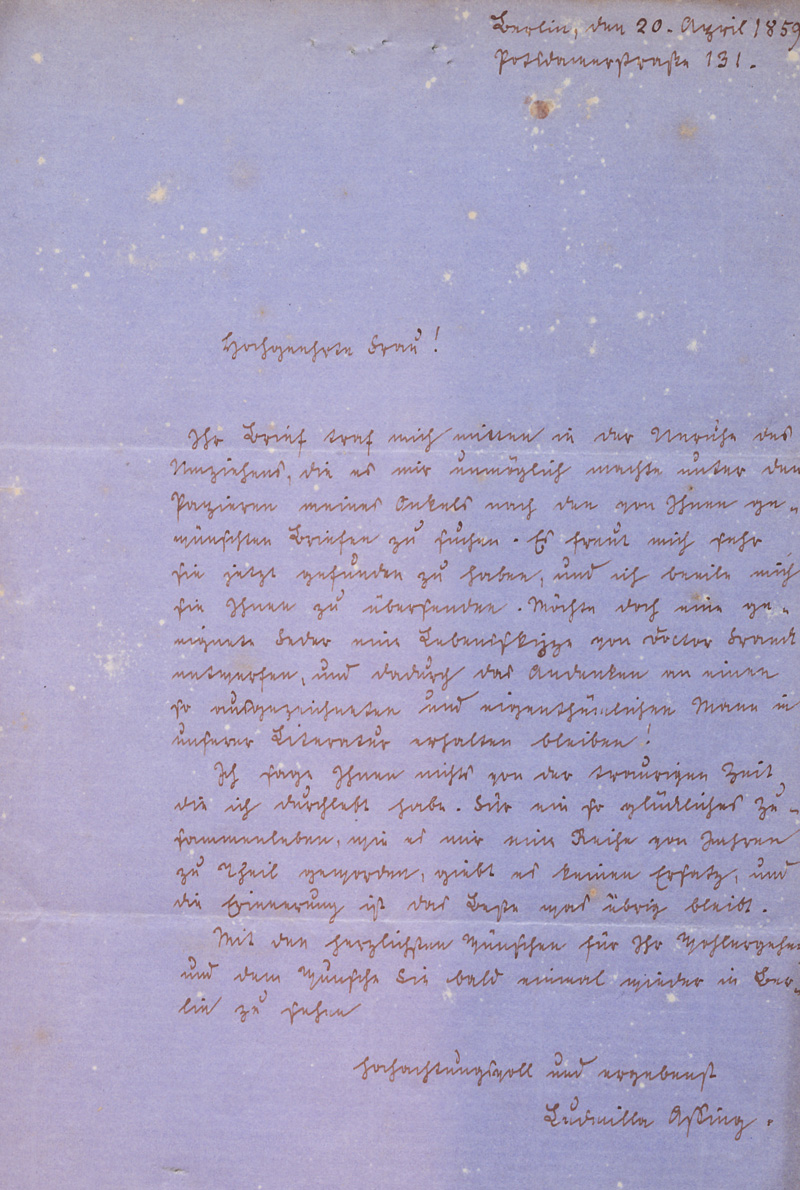 Berlin, den 20. April 1859
Potsdamerstraße 131.
Hochgeehrte Frau!
Ihr Brief traf mich mitten in der Unruhe des
Umziehens, die es mir unmöglich machte unter den
Papieren meines Onkels nach den von Ihnen ge-
wünschten Briefen zu suchen. Es freut mich sehr
sie jetzt gefunden zu haben, und ich beeile mich
sie Ihnen zu übersenden. Möchte doch eine ge-
eignete Feder eine Lebensskizze von Doctor Frank
entwerfen, und dadurch das Andenken an einen
so ausgezeichneten und eigenthümlichen Mann in
unserer Literatur erhalten bleiben!
Ich sage Ihnen nichts von der traurigen Zeit
die ich durchlebt habe. Für ein so glückliches Zu-
sammenleben, wie es mir eine Reihe von Jahren
zu Theil geworden, giebt es keinen Ersatz, und
die Erinnerung ist das Beste was übrig bleibt.
Mit den herzlichsten Wünschen für Ihr Wohlergehen
und dem Wunsche Sie bald einmal wieder in Ber-
lin zu sehen
hochachtungsvoll und ergebenst
Ludmilla Assing.